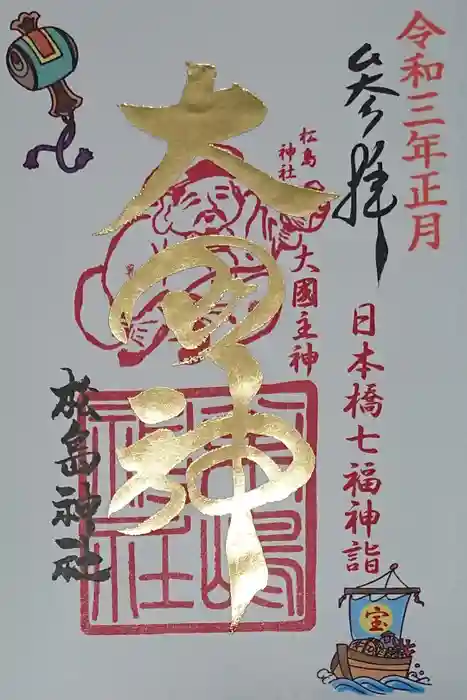 令和三年正月
参拝
日本橋七福神詣
松島
神社
大國主神
大国神
松島神社
松嶋
神社
宝